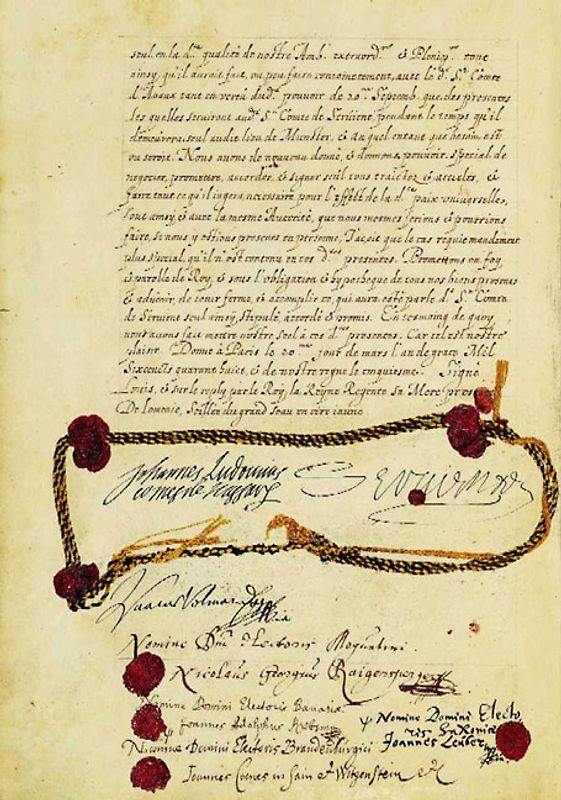 seul en la d.te qualité de nostre Amb.r extraord.re & Plenip.re tout
ainsy, qu'il auroit fait, ou peu faire conjoinctement, avec le d. S.r Comte
d'Avaux tant en vertu dud. pouvoir du 20.me Septemb. que, des presentes
les quelles serviront aud. S.r Comte de Servient pendant le temps qu'il
demeurera seul audit lieu de Munster, & an quel entant que besoin est
ou seroit. Nous avons de nouveau donné, & donnons, pouvoir, special, de
negocier, promettre, accorder, & signer seul tous traictez & articles, &
faire tout ce qu'il jugera, necessaire pour l'effect de la d.te paix universelle,
tout ainsy, & avec la mesme Autorité, que nous mesmes ferions & pourrions
faire, si nous y estions presens en personne, Jaçoit que le cas requit mandement
plus special, qu'il n'est contenu en ces d.tes presentes. Promettons en foy
& parolle de Roy, & sous l'obligation & hypotheque de tous nos biens presens
& advenir, de tenir ferme, & accomplir ce, qui aura esté par le d. S.r Comte
de Servient seul ainsy, stipulé, accordé & promis. En tesmoing de quoy
nous avons fait mettre nostre seel à ces d.tes presentes. Car tel est nostre
plaisir. Donné à Paris le 20.me jour de mars l'an de grace Mil
Sixcents quarante huict, & de nostre regne le cinquiesme. Signé
Louis, & sur le reply par le Roy, la Reyne Regente sa Mere presente
De Lomenie, Scellée du grand seau en cire jaune.
Johannes Ludovicus
comes de Nassaw
Servien
Isaacus Volmar
Nomine Dni Electoris Moguntini.
Nicolaus Georgius Raigersperger
Nomine Domini Electoris Bavariae
Joannes Adolphus Krebs
Nomine Domini Electo
ris Saxoniae
Joannes Leuber
Nomine Domini Electoris Brandenburgici
Joannes Comes in Sain et Witgenstein